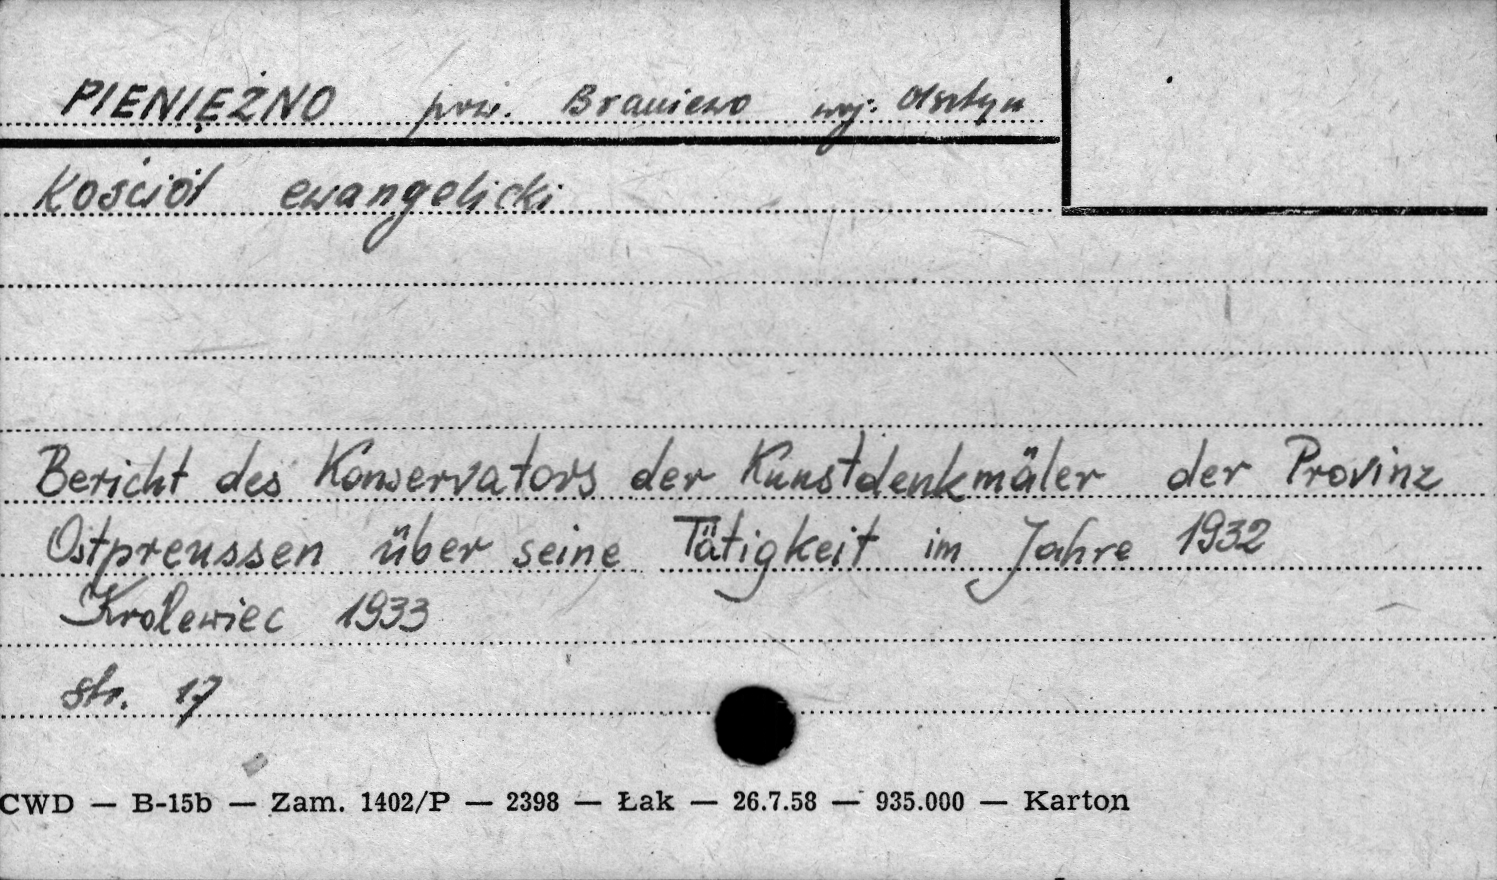 PIENIĘŻNO pow. Braniewo woj. Olsztyn
Kościół ewangelicki
Bericht des Konservators der Kunstdenkmäler der Provinz
Ostpreussen über seine Tätigkeit im Jahre 1932
Królewiec 1933
str. 17
CWD — B-15b — Zam. 1402/P — 2398 — Łak — 26.7.58 — 935.000 — Karton